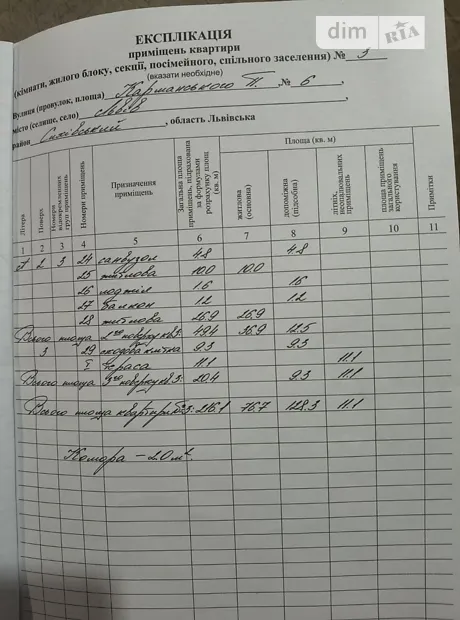 dim RIA
ЕКСПЛІКАЦІЯ
приміщень квартири
(кімнати, жилого блоку, секції, посімейного, спільного заселення) № 3
(вказати необхідне)
Вулиця (провулок, площа) Карманського П. , № 6 ,
місто (селище, село) Львів ,
район Сихівський , область Львівська
Літера Поверх Номери відокремлених груп приміщень Номери приміщень Призначення приміщень Загальна площа приміщень, підрахована за формулами розрахунку площ (кв. м) Площа (кв. м) житлова (основна) допоміжна (підсобна) літніх, неопалювальних приміщень площа приміщень загального користування Примітки
1 2 3 4 5 6 7 8 9 10 11
2 3 24 санвузол 4.8 4.8
25 житлова 10.0 10.0
26 лоджія 1.6 1.6
27 балкон 1.2 1.2
28 житлова 26.9 26.9
Всього площа 2го поверху кв 3: 49.4 36.9 12.5
3 29 сходова клітка 9.3 9.3
I тераса 11.1 11.1
Всього площа 3го поверху кв 3: 20.4 9.3 11.1
Всього площа квартири 3: 216.1 76.7 128.3 11.1
Комора – 2.0 м².